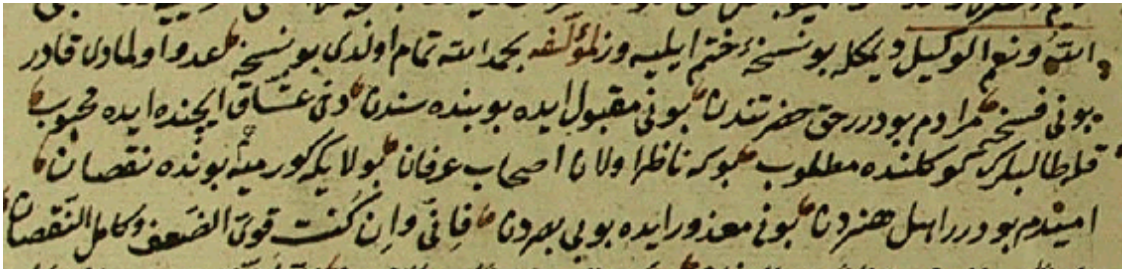 الله ونعم الوكيل ديمكله بو نسخهٔ ختم ايليه وز لمؤلفه بحمد الله تمام اولدى بو نسخه عدو اولمادى قادر
بونى فسخه مرادم بودرر حق حضرتندن بونى مقبول ايده بو بنده سندن دخى عشاق ايچنده ايده محبوب
قلا طالبلرك كوكلنده مطلوب بوكه ناظر اولان اصحاب عرفان بولايكه كورميه بونده نقصان
اميدم بودرر اهل هنردن بونى معذور ايده بو بى بصردن فانى وان كنت قوى الضعف وكامل النقصان